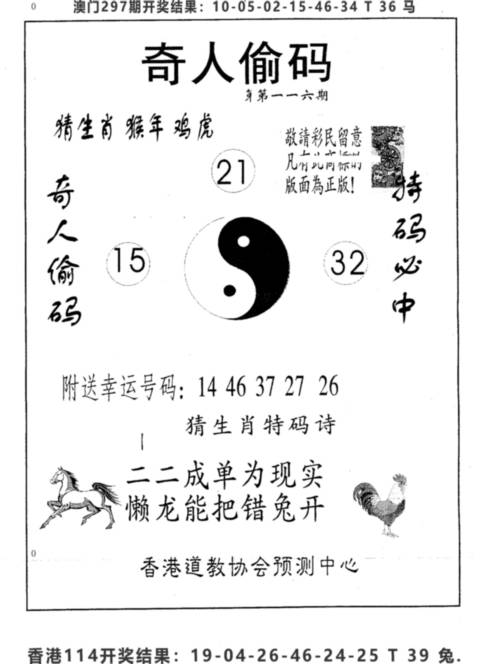 0
澳门297期开奖结果：10-05-02-15-46-34 T 36 马
奇人偷码
第一一六期
猜生肖 猴年 鸡虎
敬請彩民留意
凡有此商標的
版面為正版!
21
奇人偷码
特码必中
15
32
附送幸运号码：14 46 37 27 26
猜生肖特码诗
二二成单为现实
懒龙能把错兔开
0
香港道教协会预测中心
香港114开奖结果：19-04-26-46-24-25 T 39 兔.